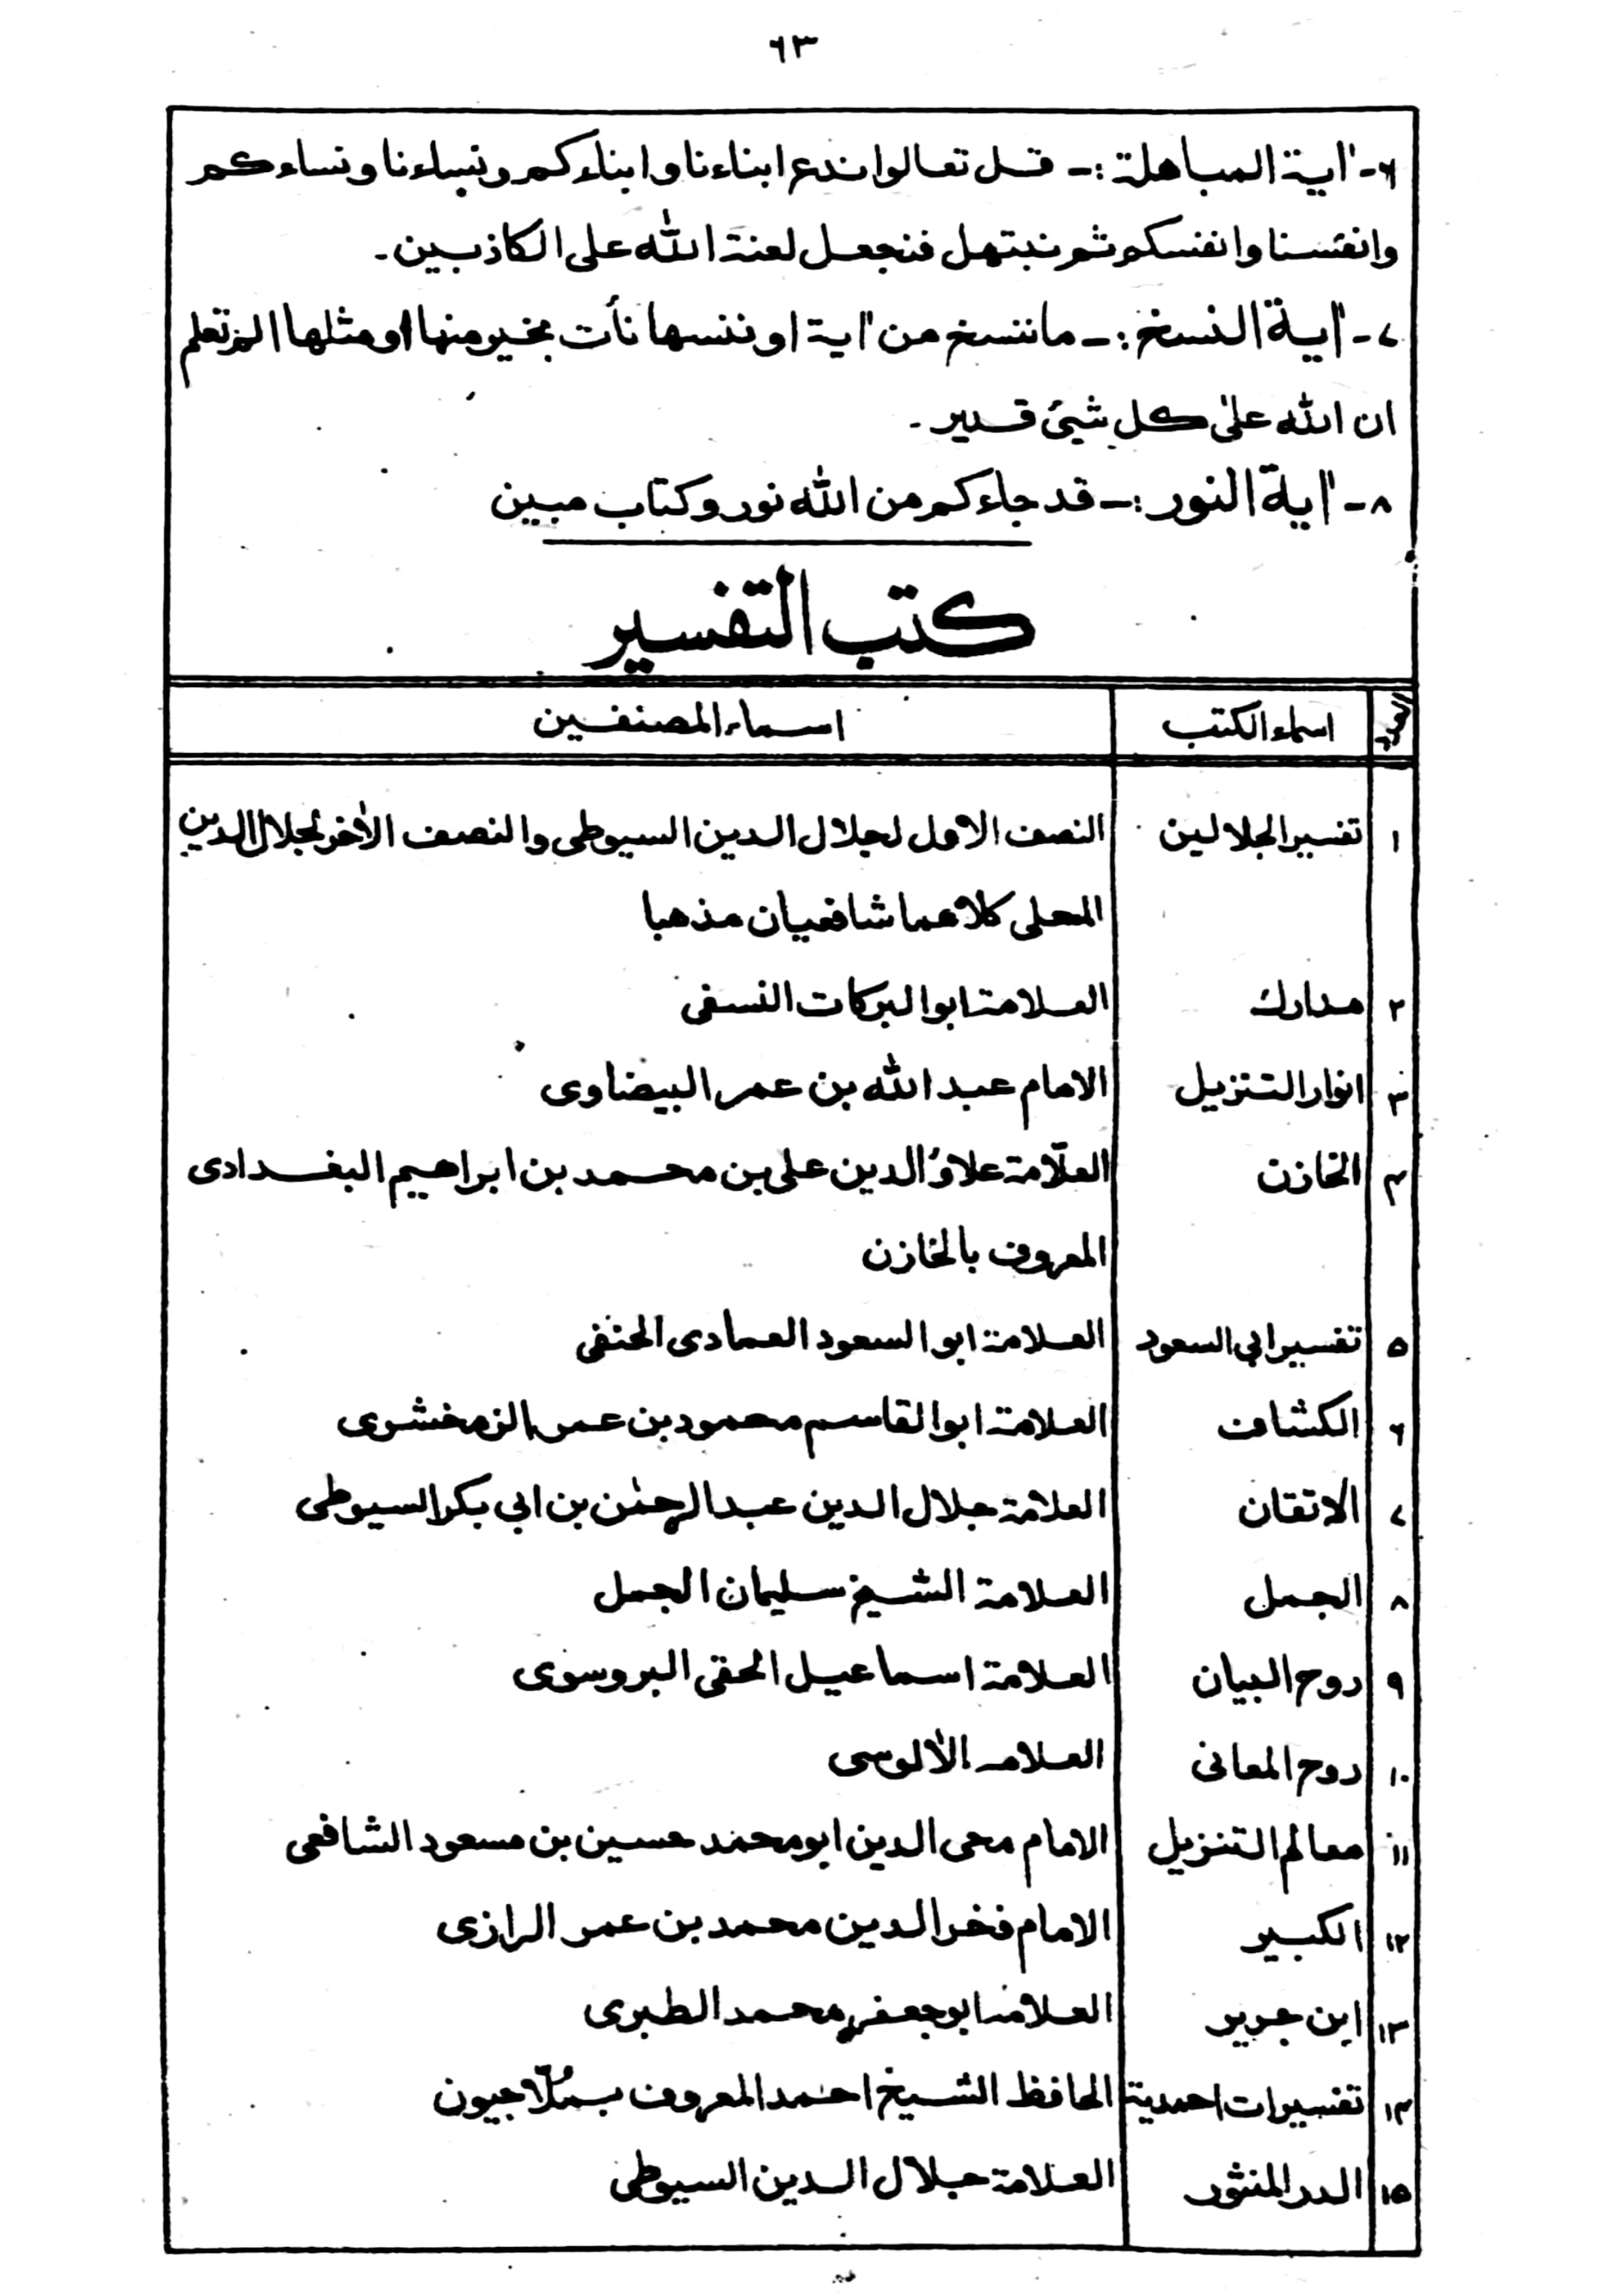 ٦٣
٦ـ اٰية المباهلة :ـ قل تعالوا ندع ابناءنا وابناءكم ونساءنا ونساءكم
وانفسنا وانفسكم ثم نبتهل فنجعل لعنة الله على الكاذبين ـ
٧ـ اٰية النسخ :ـ ما ننسخ من اٰية او ننسها نأت بخير منها او مثلها الم تعلم
ان الله علىٰ كل شيئ قدير ـ
٨ـ اٰية النور :ـ قد جاءكم من الله نور وكتاب مبين
كتب التفسير
العدد اسماء الكتب اسماء المصنفين
١ تفسير الجلالين النصف الاول لجلال الدين السيوطى والنصف الاٰخر لجلال الدين
المحلى كلاهما شافعيان مذهبا
٢ مدارك العلامة ابو البركات النسفى
٣ انوار التنزيل الامام عبد الله بن عمر البيضاوى
٤ الخازن العلّامة علاؤ الدين على بن محمد بن ابراهيم البغدادى
المعروف بالخازن
٥ تفسير ابي السعود العلامة ابو السعود العمادى الحنفى
٦ الكشاف العلامة ابو القاسم محمود بن عمر الزمخشرى
٧ الاتقان العلامة جلال الدين عبد الرحمٰن بن ابي بكر السيوطى
٨ الجمل العلامة الشيخ سليمان الجمل
٩ روح البيان العلامة اسماعيل الحقى البروسوى
١٠ روح المعانى العلامه الاٰلوسى
١١ معالم التنزيل الامام محى الدين ابو محمد حسين بن مسعود الشافعى
١٢ الكبير الامام فخر الدين محمد بن عمر الرازى
١٣ ابن جرير العلامة ابو جعفر محمد الطبرى
١٤ تفسيرات احمدية الحافظ الشيخ احمد المعروف بملّا جيون
١٥ الدر المنثور العلامة جلال الدين السيوطى